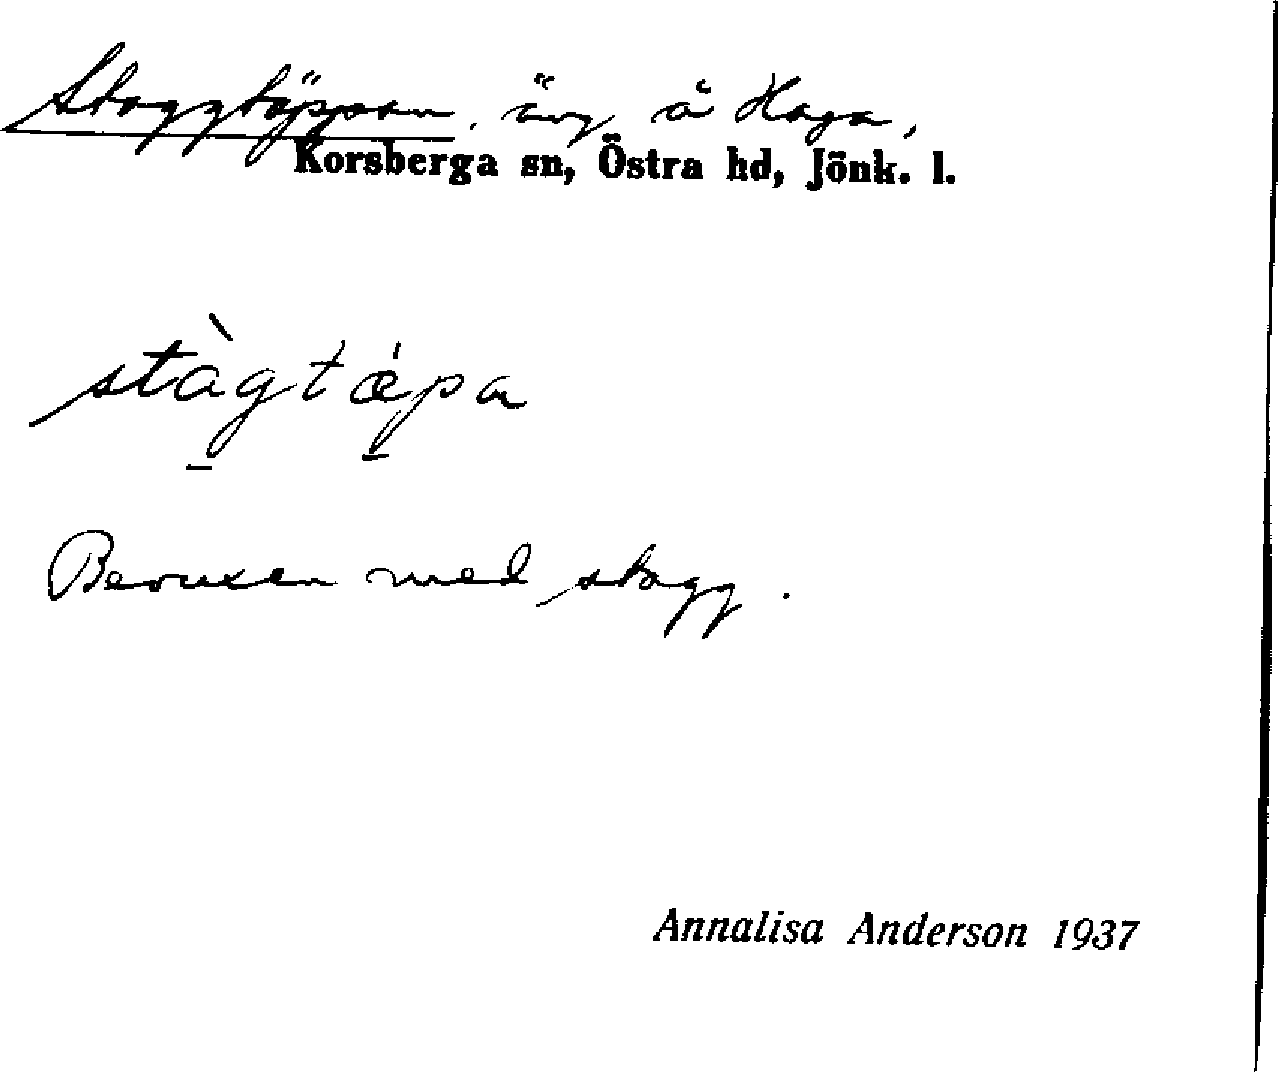 Staggtäppan, äng å Haga,
Korsberga sn, Östra hd, Jönk. l.
stàgtǽpa
Bevuxen med stagg.
Annalisa Anderson 1937